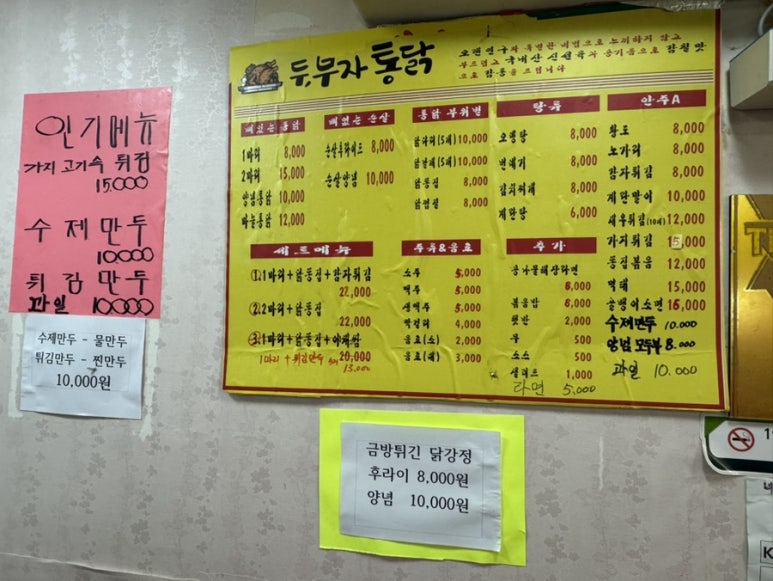 인기메뉴
가지 고기속 튀김
15,000
수제만두
10000
튀김만두
과일 10000
수제만두 - 물만두
튀김만두 - 찐만두
10,000원
두부자 통닭
맛있는 통닭
1마리 8,000
2마리 15,000
양념통닭 10,000
마늘통닭 12,000
맛있는 순살
순살후라이드 8,000
순살양념 10,000
통닭 부위별
닭다리(5개) 10,000
닭날개(5개) 10,000
닭똥집 8,000
닭껍질 8,000
탕류
오뎅탕 8,000
번데기 8,000
김치찌개 8,000
계란탕 6,000
안주A
황도 8,000
노가리 8,000
감자튀김 8,000
계란말이 10,000
새우튀김(10개) 12,000
가지튀김 15,000
똥집볶음 12,000
먹태 15,000
골뱅이소면 16,000
수제만두 10.000
양념 모두부 8.000
과일 10.000
세트메뉴
①.1마리+닭똥집+감자튀김
22,000
②.2마리+닭똥집
22,000
③.1마리+닭똥집+야채쌈
20,000
1마리 + 튀김만두
13.000
주류&음료
소주 5,000
맥주 5,000
생맥주 5,000
막걸리 4,000
음료(소) 2,000
음료(대) 3,000
추가
콩나물해장라면
6,000
볶음밥 6,000
햇반 2,000
무 500
소스 500
샐러드 1,000
라면 5,000
금방튀긴 닭강정
후라이 8,000원
양념 10,000원